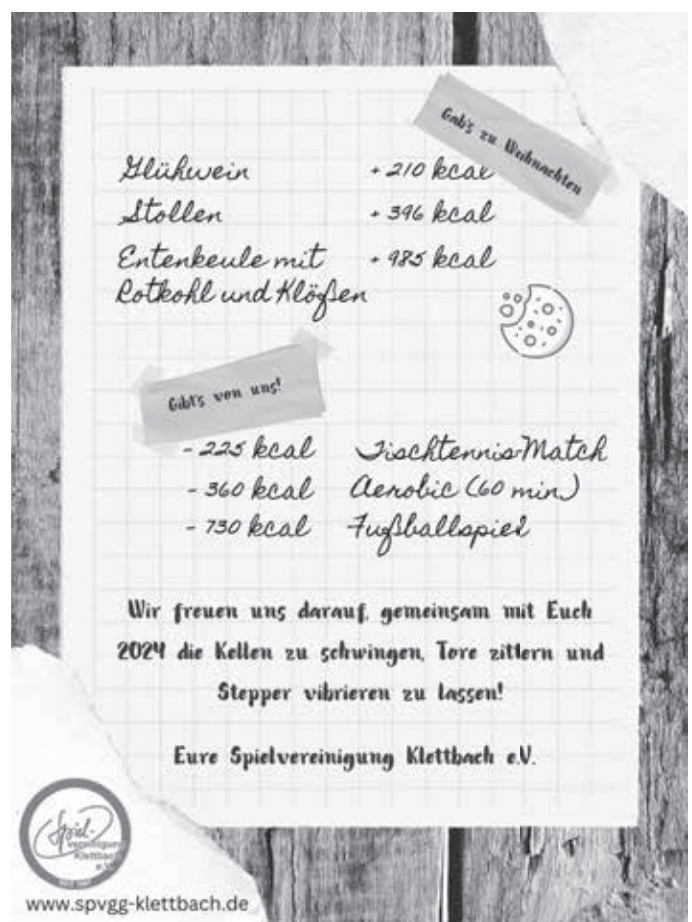 Gab's zu Weihnachten
Glühwein + 210 kcal
Stollen + 396 kcal
Entenkeule mit + 985 kcal
Rotkohl und Klößen
Gibt's von uns!
- 225 kcal Tischtennis-Match
- 360 kcal Aerobic (60 min)
- 730 kcal Fußballspiel
Wir freuen uns darauf, gemeinsam mit Euch
2024 die Kellen zu schwingen, Tore zittern und
Stepper vibrieren zu lassen!
Eure Spielvereinigung Klettbach e.V.
Spiel-
vereinigung
Klettbach
e.V.
www.spvgg-klettbach.de